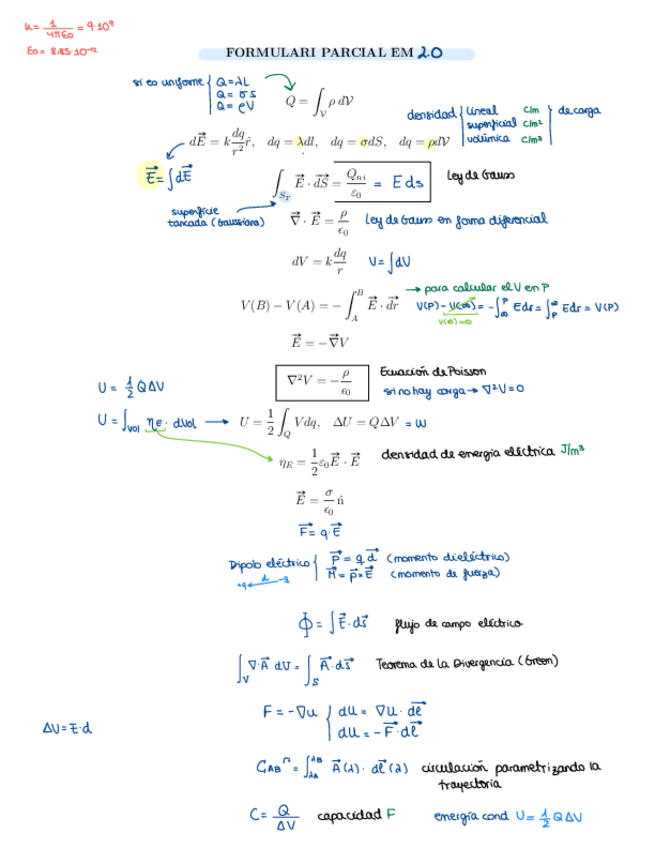 K = 1/4πε0 = 9·10⁹
ε0 = 8,85·10⁻¹²
FORMULARI PARCIAL EM 2.0
si es uniforme { Q=λL
Q= σS
Q= ρV
Q = ∫_V ρ dV
densidad { lineal C/m
superficial C/m²
volúmica C/m³ } de carga
dE⃗ = k dq/r² r̂, dq = λdl, dq = σdS, dq = ρdV
E⃗ = ∫dE⃗
∫_{S_T} E⃗ · dS⃗ = Q_{ni}/ε₀ = E ds
Ley de Gauss
superficie
tancada (Gaussiana)
∇⃗ · E⃗ = ρ/ϵ₀
Ley de Gauss en forma diferencial
dV = k dq/r
V = ∫dV
V(B) − V(A) = −∫_A^B E⃗ · dr⃗
→ para calcular el V en P
V(P) - V(∞) = -∫_∞^P E dr = ∫_P^∞ E dr = V(P)
V(∞)=0
E⃗ = −∇⃗V
∇²V = −ρ/ϵ₀
Ecuación de Poisson
si no hay carga → ∇²V = 0
U = 1/2 QΔV
U = ∫_{vol} η_E · dvol → U = 1/2 ∫_Q V dq, ΔU = QΔV = W
η_E = 1/2 ε₀E⃗ · E⃗
densidad de energia eléctrica J/m³
E⃗ = σ/ϵ₀ n̂
F⃗ = q·E⃗
Dipolo eléctrico { P⃗ = q d⃗ (momento dieléctrico)
M⃗ = p⃗ × E⃗ (momento de fuerza)
+q d -q
Φ = ∫E⃗·ds⃗ flujo de campo eléctrico
∫_V ∇·A⃗ dV = ∫_S A⃗·ds⃗ Teorema de la Divergencia (Green)
F = -∇u { du = ∇u · dl⃗
du = -F⃗·dl⃗
ΔV = E·d
C_{AB}^Γ = ∫_{λA}^{λB} A⃗(λ) · dl⃗(λ) circulación parametrizando la
trayectoria
C = Q/ΔV capacidad F
energía cond U = 1/2 QΔV